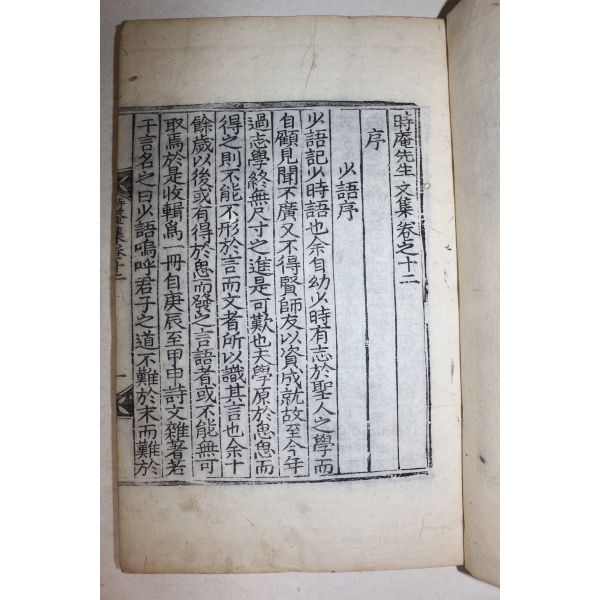 時庵先生文集卷之十二
序
少語序
少語記少時語也余自幼少時有志於聖人之學而
自顧見聞不廣又不得賢師友以資成就故至今年
過志學終無尺寸之進是可歎也夫學原於思思而
得之則不能不形於言而文者所以識其言也余十
餘歲以後或有得於思而發之言語者或不能無可
取焉於是收輯爲一冊自庚辰至甲申詩文雜著若
干言名之曰少語嗚呼君子之道不難於末而難於
時庵集卷十二
一